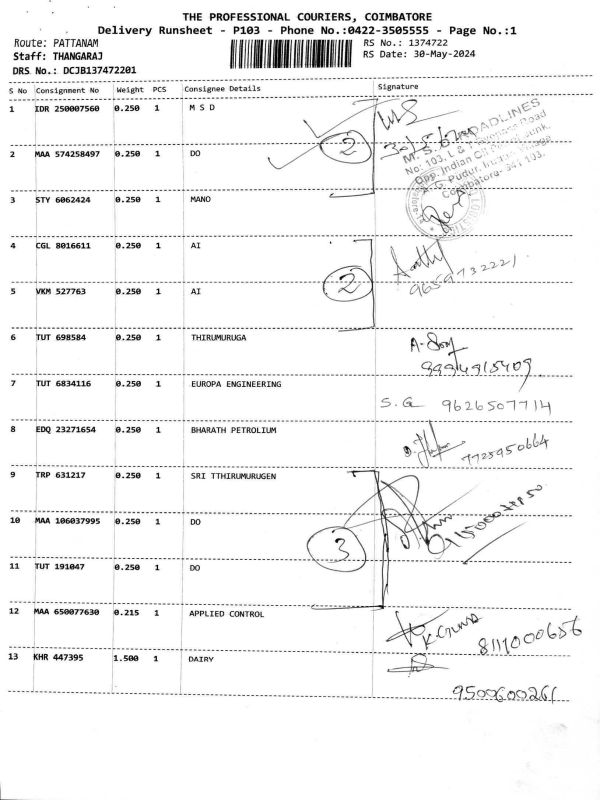 THE PROFESSIONAL COURIERS, COIMBATORE
Delivery Runsheet - P103 - Phone No.:0422-3505555 - Page No.:1
Route: PATTANAM
RS No.: 1374722
Staff: THANGARAJ
RS Date: 30-May-2024
DRS No.: DCJB137472201
S No Consignment No Weight PCS Consignee Details Signature
1 IDR 250007560 0.250 1 M S D
2 MAA 574258497 0.250 1 DO 2
M. S. ROADLINES
Opp. Indian Oil
Coimbatore- 641 103.
3 STY 6062424 0.250 1 MANO
4 CGL 8016611 0.250 1 AI
5 VKM 527763 0.250 1 AI 2 9659732221
6 TUT 698584 0.250 1 THIRUMURUGA
9994915409
7 TUT 6834116 0.250 1 EUROPA ENGINEERING
S.G 9626507714
8 EDQ 23271654 0.250 1 BHARATH PETROLIUM
7725950664
9 TRP 631217 0.250 1 SRI TTHIRUMURUGEN
10 MAA 106037995 0.250 1 DO
3
11 TUT 191047 0.250 1 DO
12 MAA 650077630 0.215 1 APPLIED CONTROL
8111000656
13 KHR 447395 1.500 1 DAIRY
9500600261